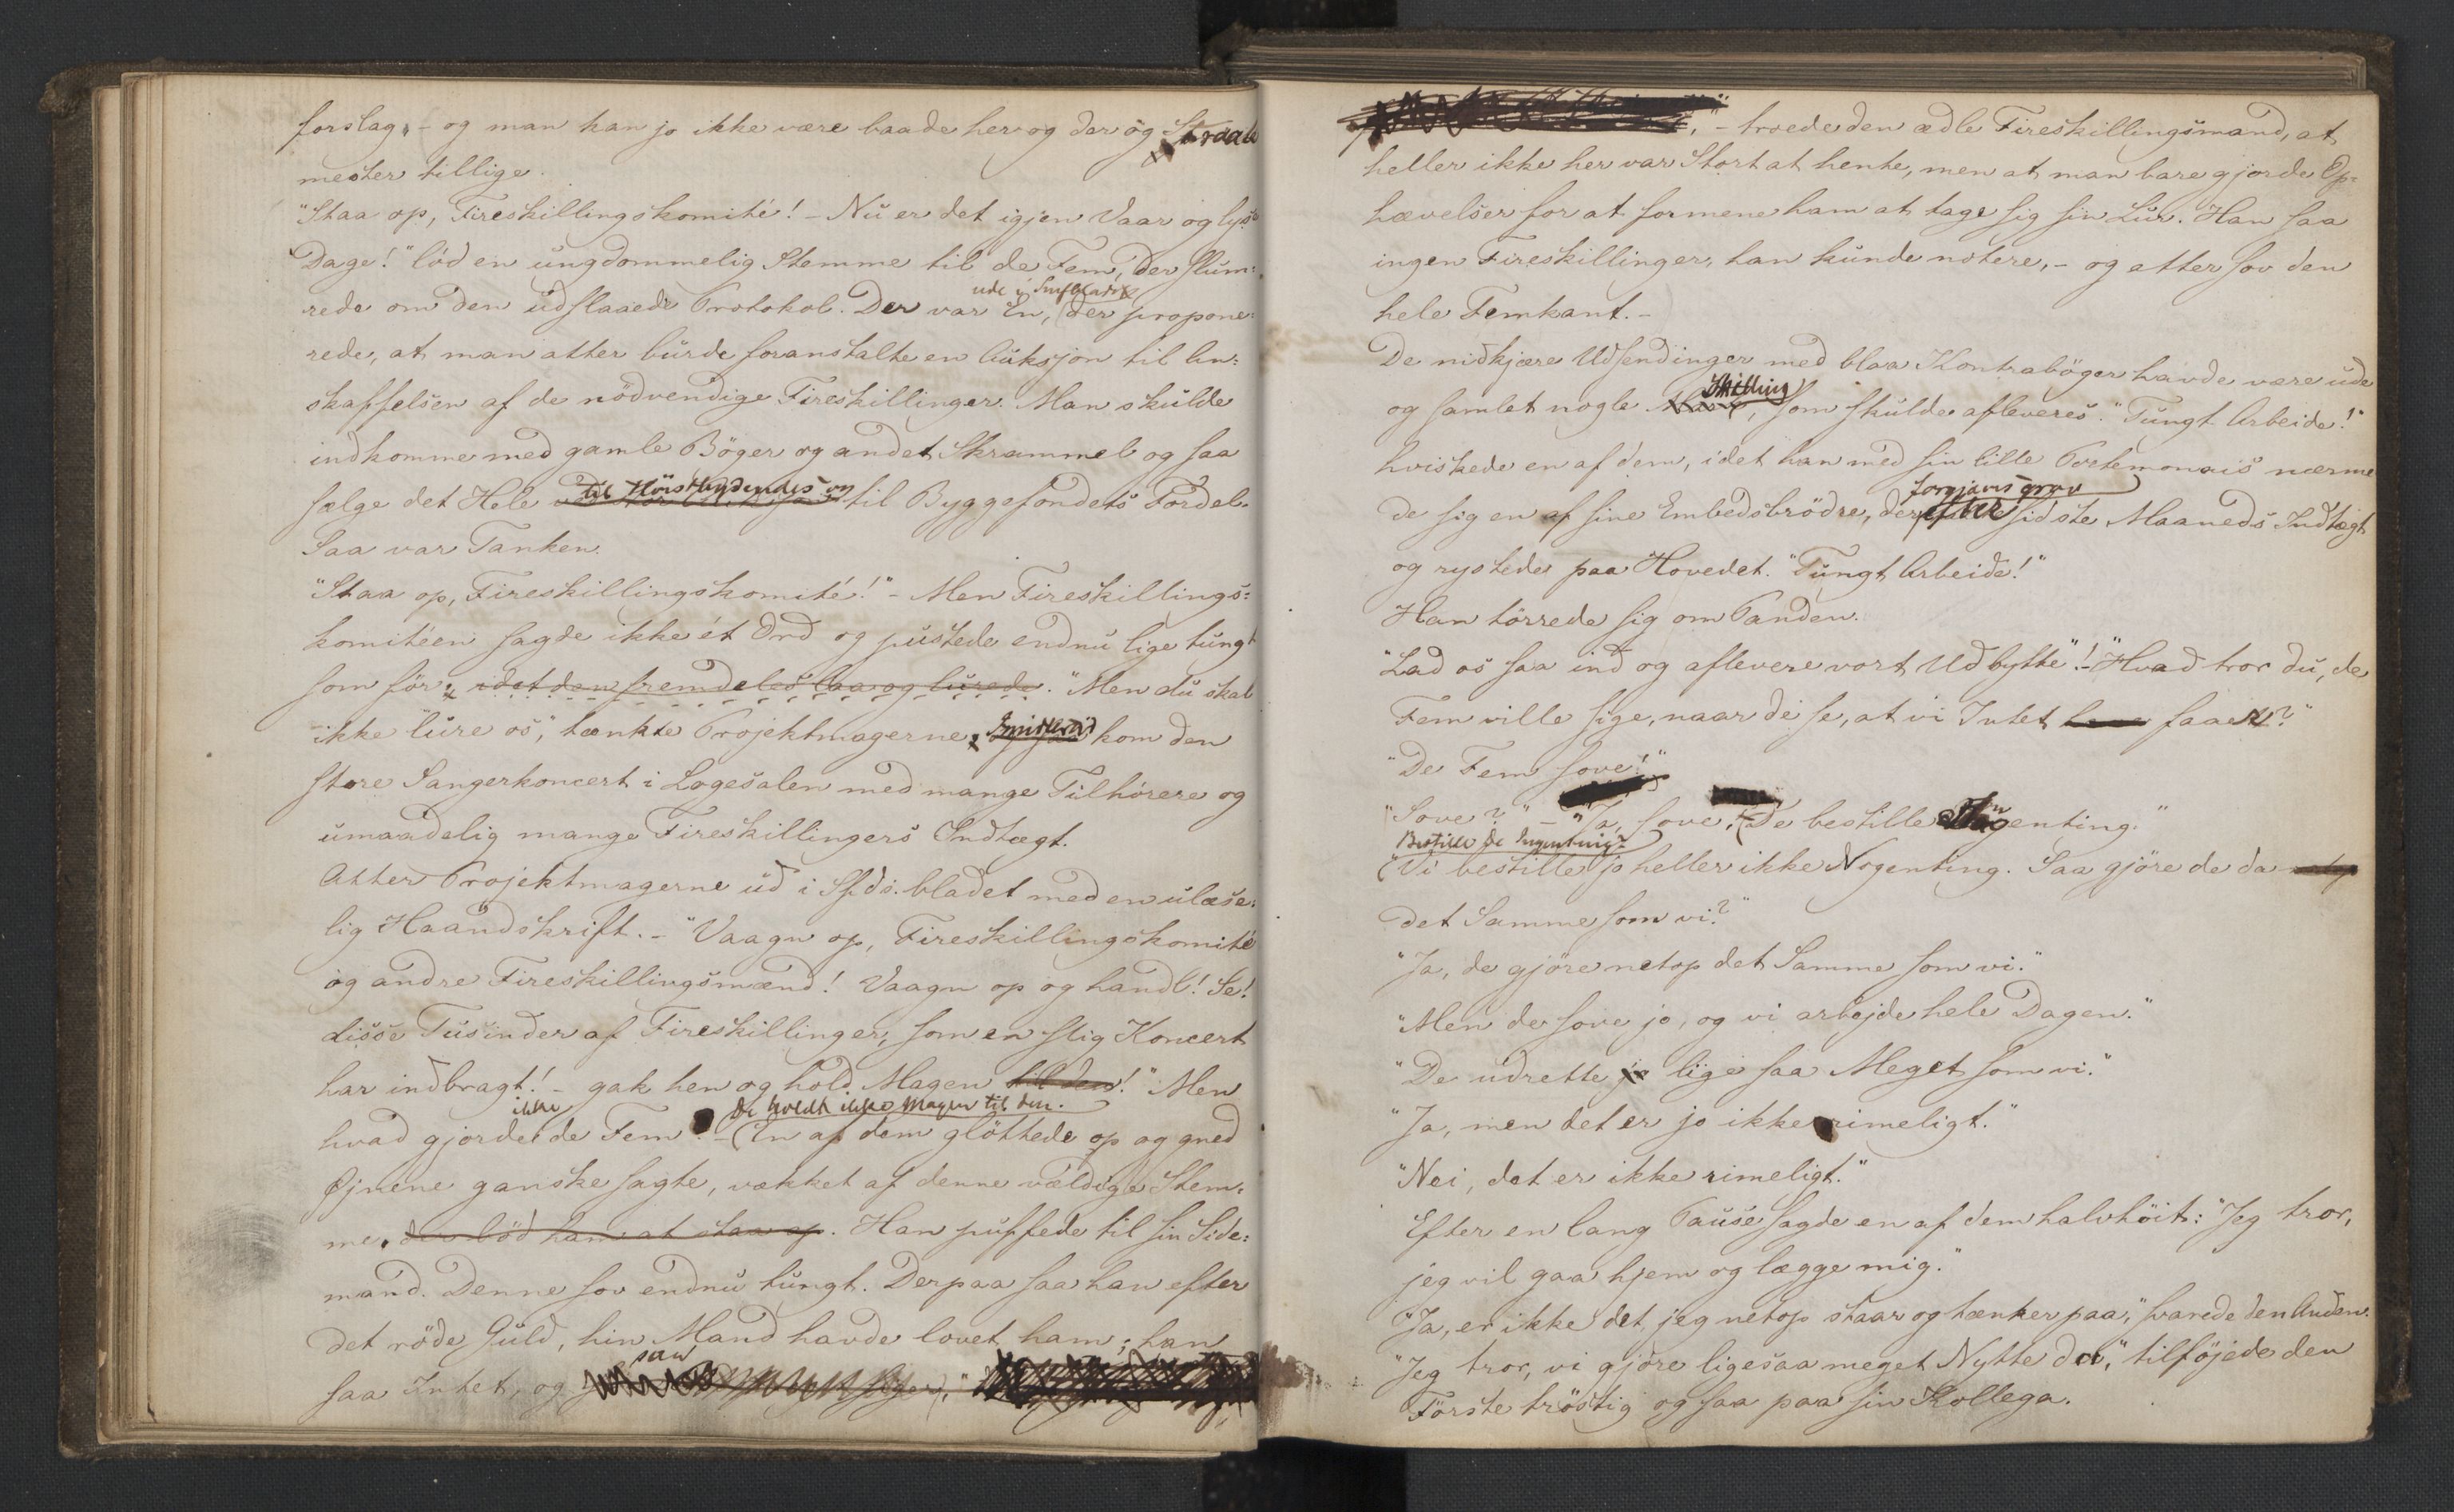 forslag, - og man kan jo ikke være baade her og der og
mester tillige.
"Staa op, Fireskillingskomité! - Nu er det igjen Vaar og lyse
Dage!" lød en ungdommelig Stemme til de Fem, der slum=
ude i
rede om den udslaaede Protokol. Der var Én, der propone=
rede, at man atter burde foranstalte en Auksjon til An=
skaffelsen af de nödvendige Fireskillinger. Man skulde
indkomme med gamle Böger og andet Skrammel og saa
til Höistbydendes og
sælge det Hele til Byggefondets Fordel.
Saa var Tanken.
"Staa op, Fireskillingskomité!" - Men Fireskillings=
komitéen sagde ikke ét Ord og pustede endnu lige tungt
som för, idet den fremdeles laa og lurede. "Men du skal
ikke lure os," tænkte Projektmagerne. Imidlertid kom den
store Sangerkoncert i Logesalen med mange Tilhörere og
umaadelig mange Fireskillingers Indtægt.
Atter Projektmagerne ud i Sfds. bladet med en ulæse=
lig Haandskrift. - "Vaagn op, Fireskillingskomité
og andre Fireskillingsmænd! Vaagn op og handl! Se!
disse Tusinder af Fireskillinger, som en slig Koncert
har indbragt! - gak hen og hold Magen til den!" Men
ikke De holdt ikke Magen til den.
hvad gjorde de Fem - En af dem glöttede op og gned
Øjnene ganske sagte, vækket af denne vældige Stem=
me, der lød ham at staa op. Han puffede til sin Side=
mand. Denne sov endnu tungt. Derpaa saa han efter
det röde Guld, hin Mand havde lovet ham; han
saa Intet, og
- troede den ædle Fireskillingsmand, at
heller ikke her var Stort at hente, men at man bare gjorde Op=
hævelser for at formene ham at tage sig sin Lur. Han saa
ingen Fireskillinger, han kunde notere, - og atter sov den
hele Femkant. -
De nidkjære Udsendinger med blaa Kontraböger havde være ude
Skilling
og samlet nogle, som skulde afleveres. "Tungt Arbeide!"
hviskede en af dem, idet han med sin lille Portemonais nærme
forgjæves grov
de sig en af sine Embedsbrödre, der efter sidste Maaneds Indtægt
og rystede paa Hovedet. "Tungt Arbeide!"
Han törrede sig om Panden.
"Lad os saa ind og aflevere vort Udbytte"! - "Hvad tror du, de
Fem ville sige, naar de se, at vi Intet faaet?"
"De Fem sove!"
"Sove?" - "Ja, sove. De bestille Ingenting."
Bestille de Ingenting?
"Vi bestille jo heller ikke Nogenting. Saa gjöre de da
det Samme som vi?"
"Ja, de gjöre netop det Samme som vi."
"Men de sove jo, og vi arbejde hele Dagen."
"De udrette jo lige saa Meget som vi."
"Ja, men det er jo ikke rimeligt."
"Nei, det er ikke rimeligt."
Efter en lang Pause sagde en af dem halvhöit: "Jeg tror,
jeg vil gaa hjem og lægge mig."
"Ja, er ikke det, jeg netop staar og tænker paa," svarede den Anden.
"Jeg tror, vi gjöre ligesaa meget Nytte da," tilföjede den
Förste tröstig og saa paa sin Kollega.